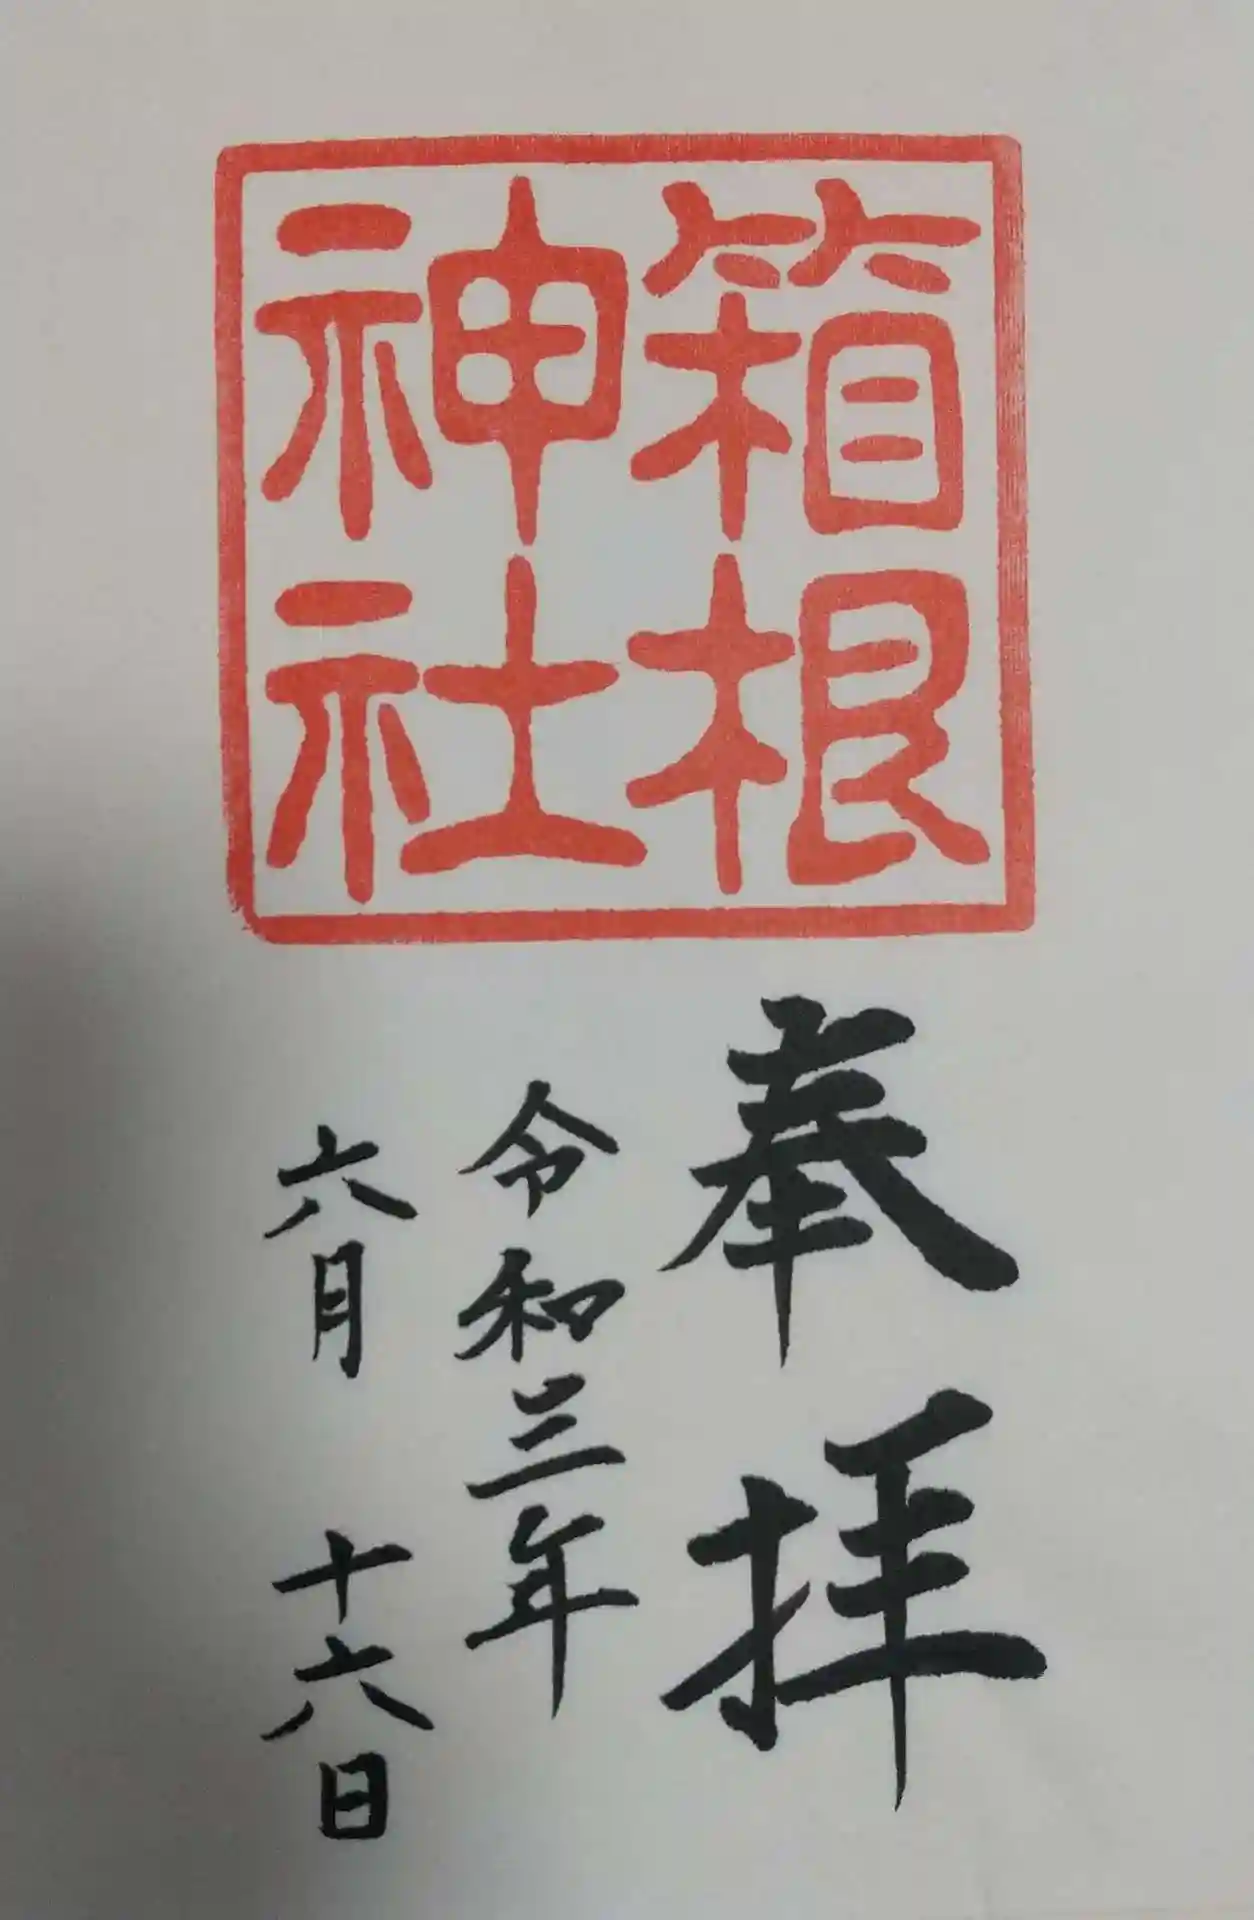 箱根
神社
奉拝
令和三年
六月十六日